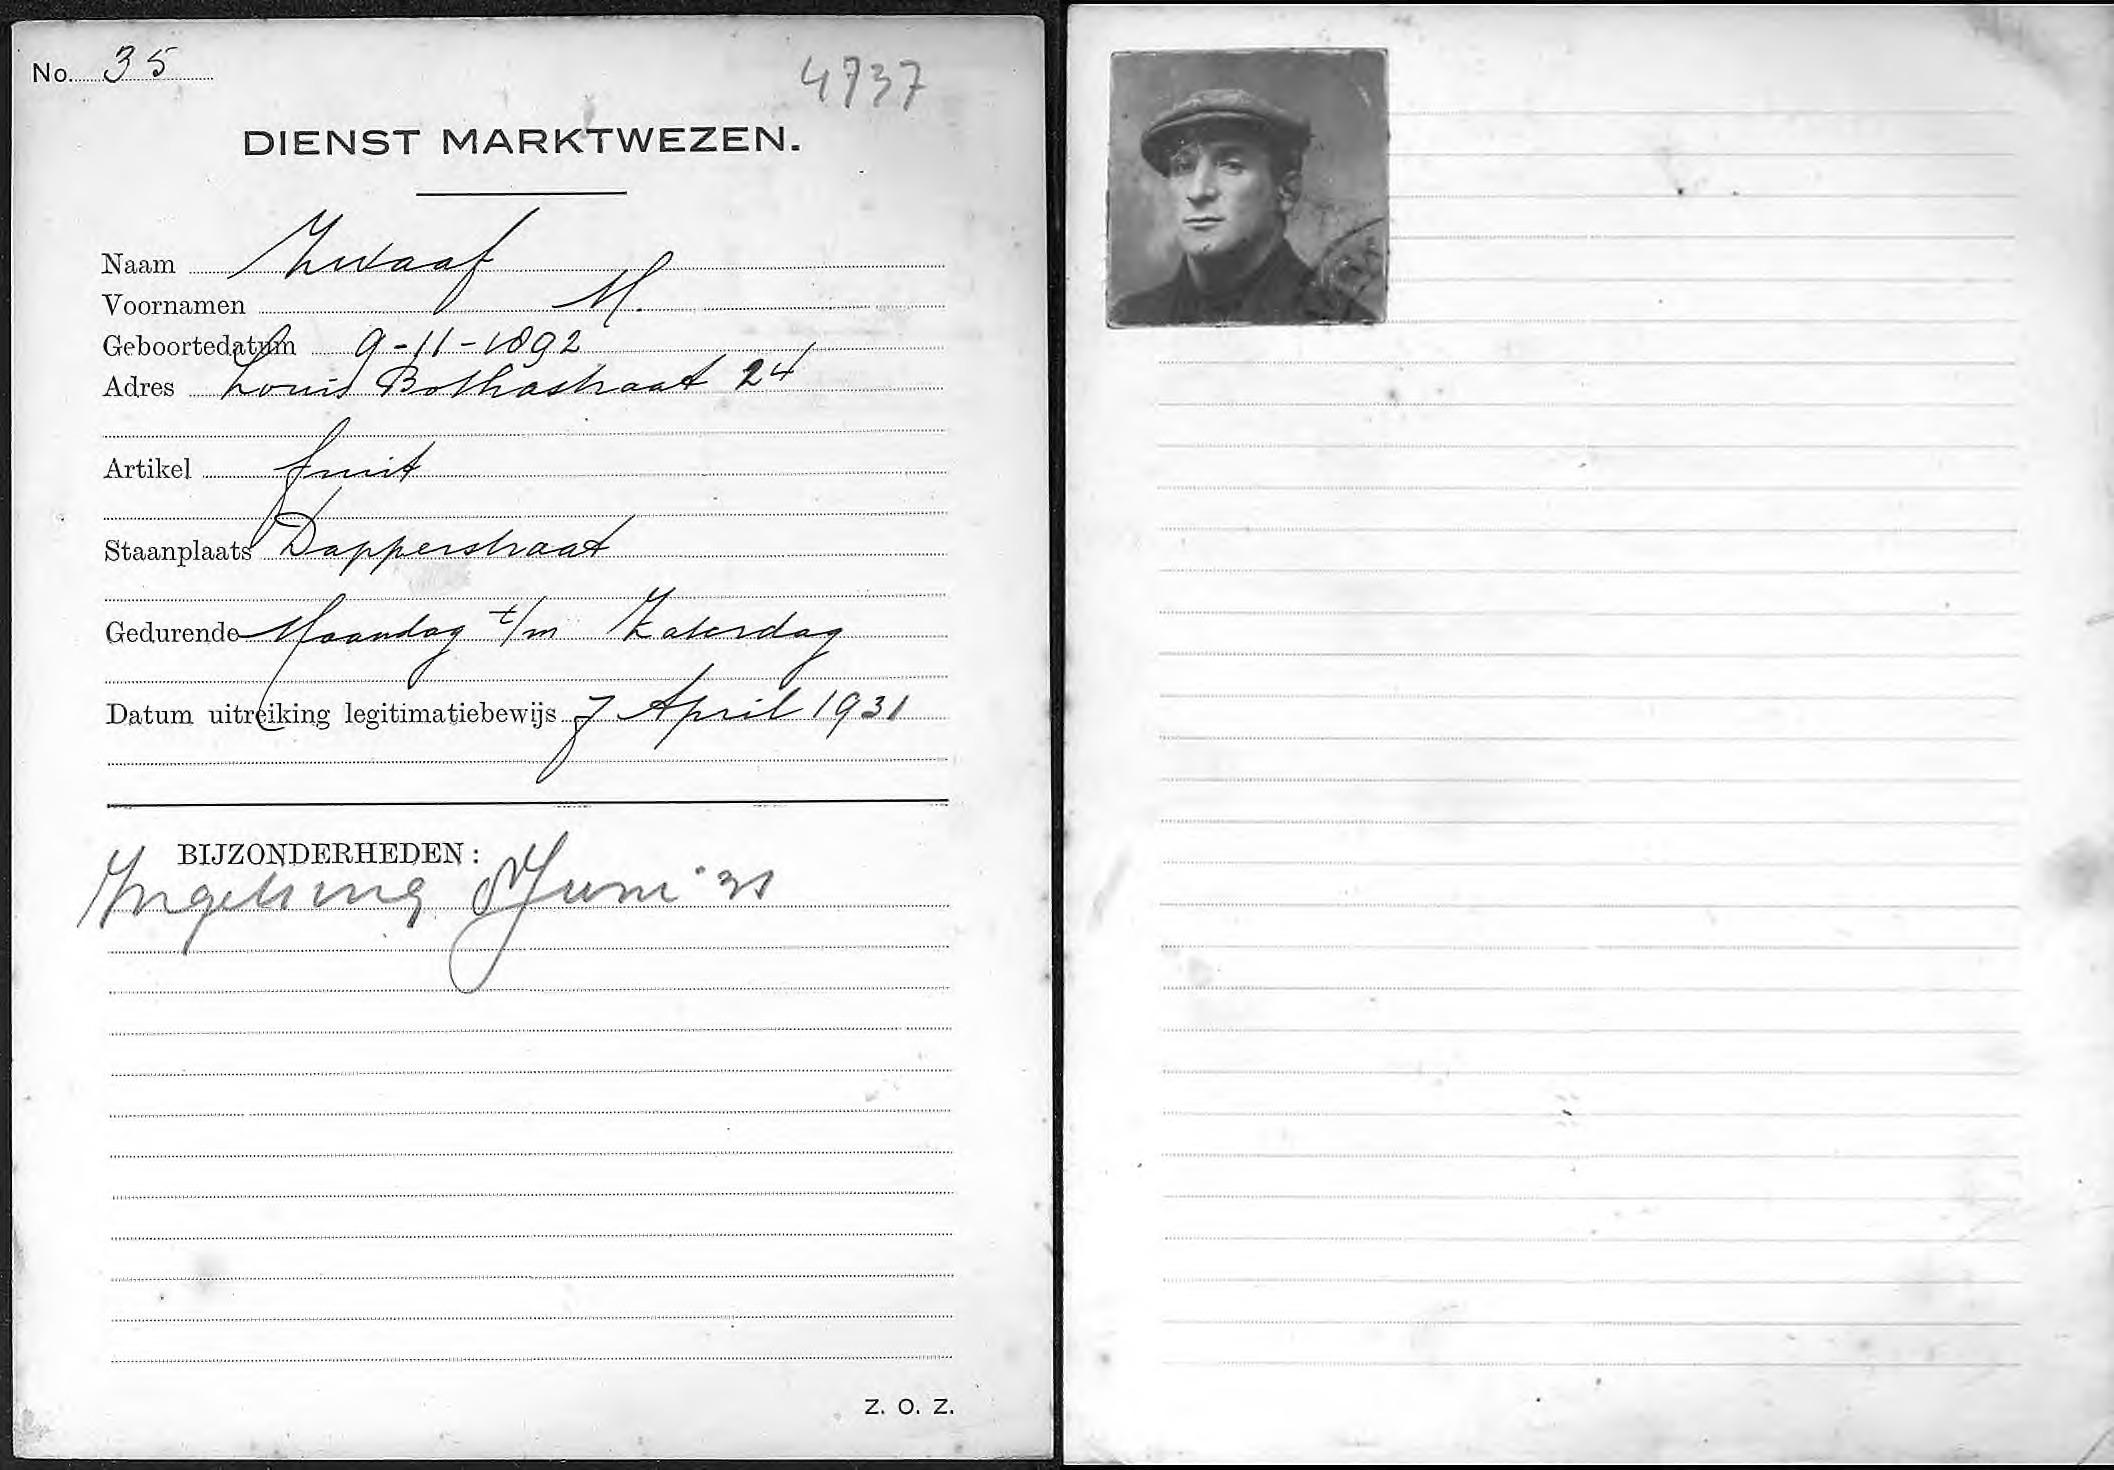 No. 35
4737
DIENST MARKTWEZEN.
Naam Zwaaf
Voornamen M.
Geboortedatum 9-11-1892
Adres Louis Bothastraat 24
Artikel fruit
Staanplaats Dapperstraat
Gedurende Maandag t/m Zaterdag
Datum uitreiking legitimatiebewijs 7 April 1931
BIJZONDERHEDEN:
Juni '31
Z. O. Z.